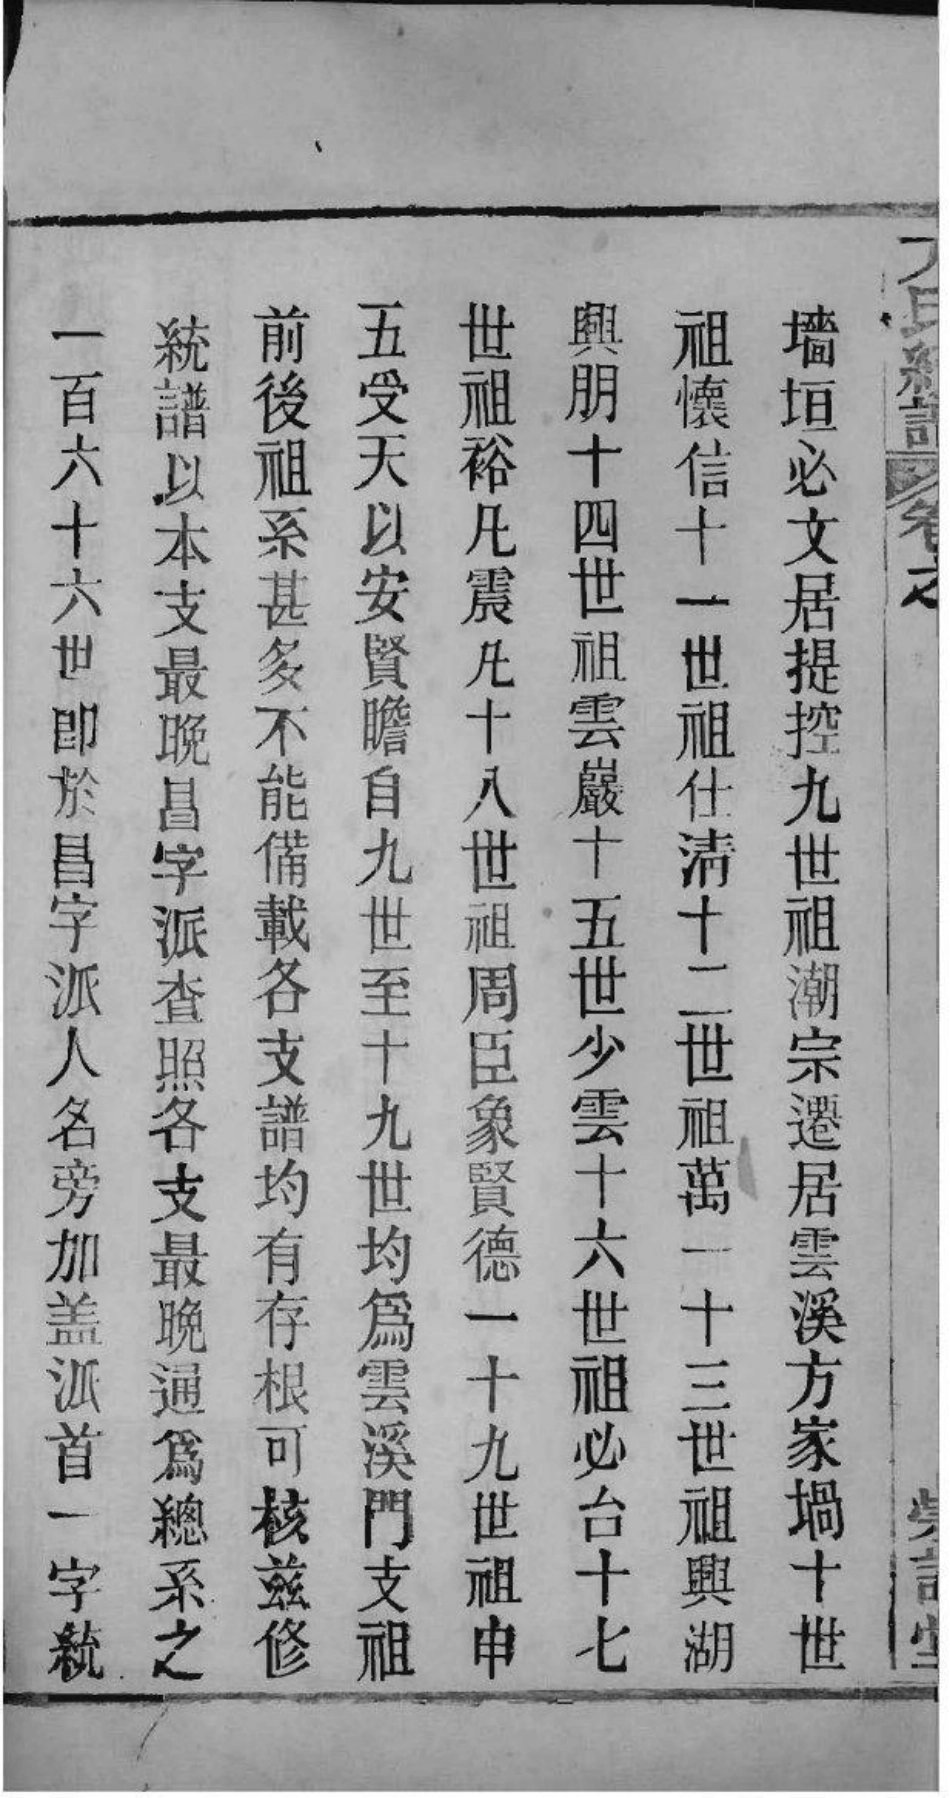 氏統譜 卷之
墻垣必文居提控九世祖潮宗遷居雲溪方家堝十世
祖懷信十一世祖仕淸十二世祖萬一十三世祖興湖
興朋十四世祖雲巖十五世少雲十六世祖必台十七
世祖裕凡震凡十八世祖周臣象賢德一十九世祖申
五受天以安賢瞻自九世至十九世均爲雲溪門支祖
前後祖系甚多不能備載各支譜均有存根可核茲修
統譜以本支最晚昌字派查照各支最晚通爲總系之
一百六十六世卽於昌字派人名旁加盖派首一字統